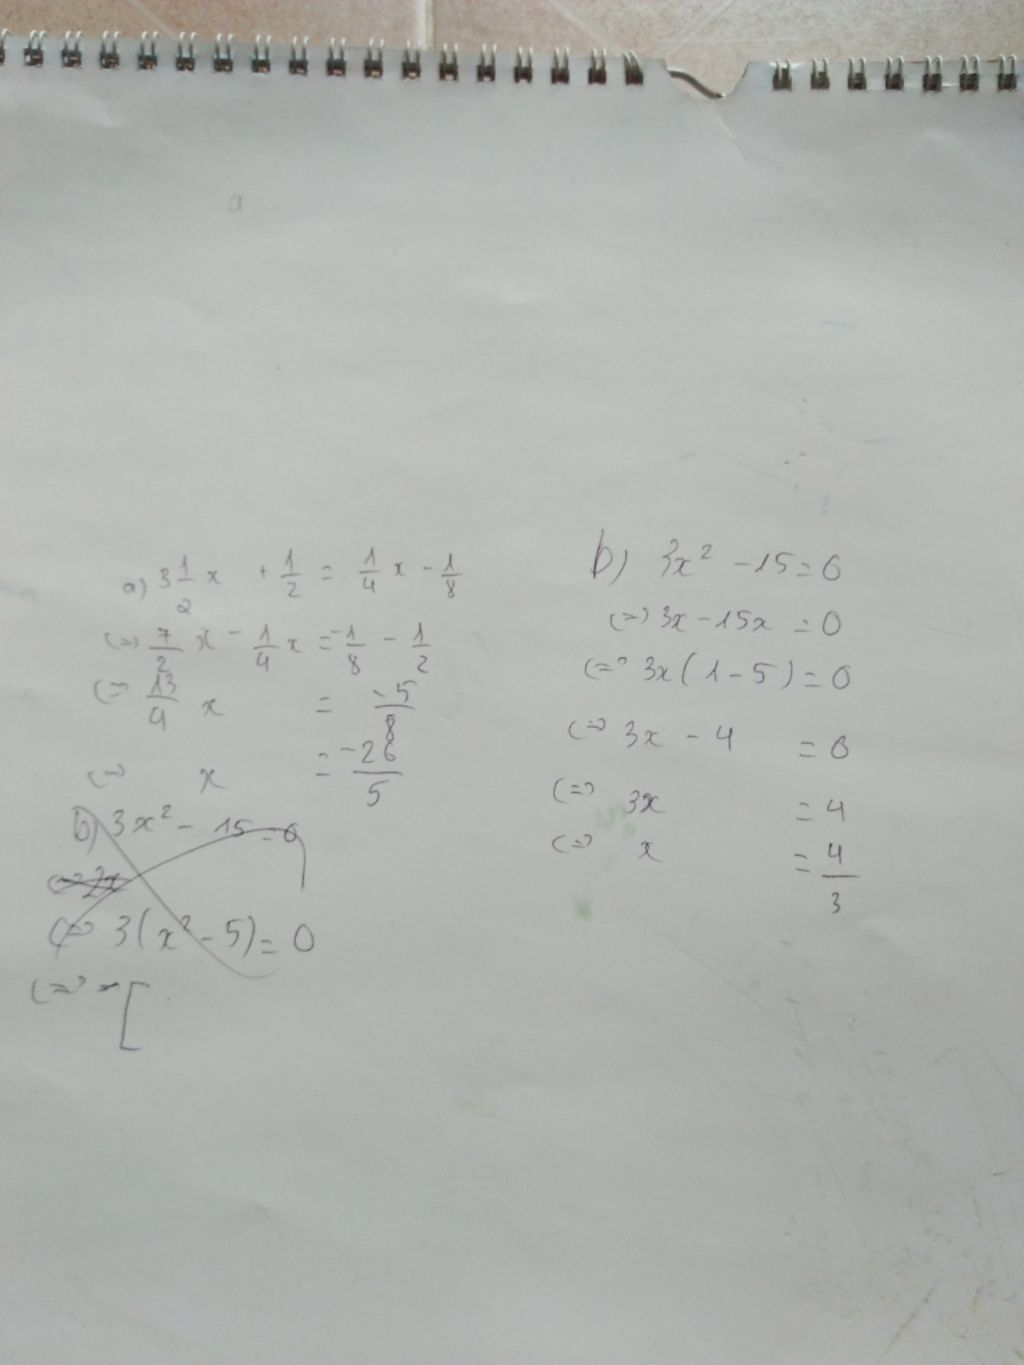 a
a) 3 1/2 x + 1/2 = 1/4 x - 1/8
2
(=) 7/2 x - 1/4 x = -1/8 - 1/2
(=) 13/4 x = -5/8
(=) x = -26/5
b) 3x² - 15 = 0
(=) 3(x² - 5) = 0
(=) [
b) 3x² - 15 = 0
(=) 3x - 15x = 0
(=) 3x(1 - 5) = 0
(=) 3x - 4 = 0
(=) 3x = 4
(=) x = 4/3